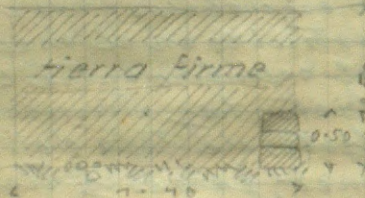 tierra firme
0.50